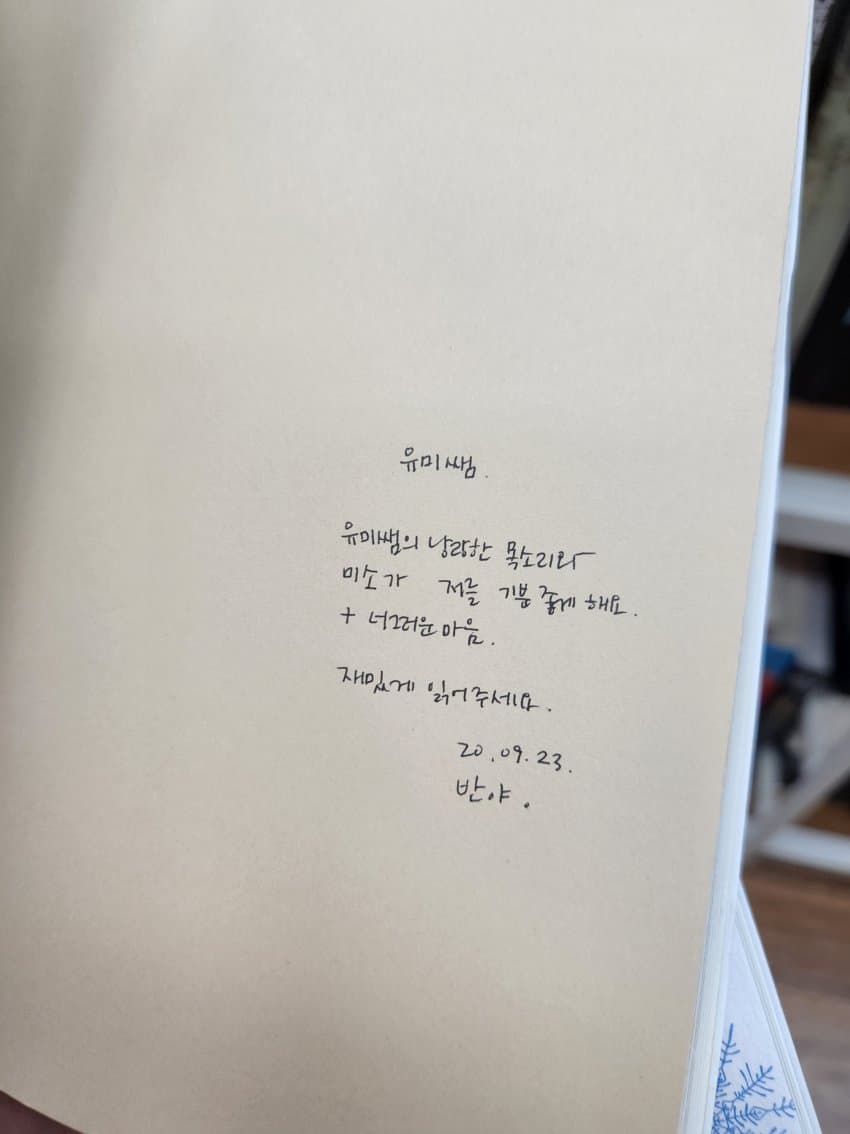 유미쌤.
유미쌤의 낭랑한 목소리와
미소가 저를 기분 좋게 해요.
+ 너그러운 마음.
재밌게 읽어주세요.
20.09.23.
반야.